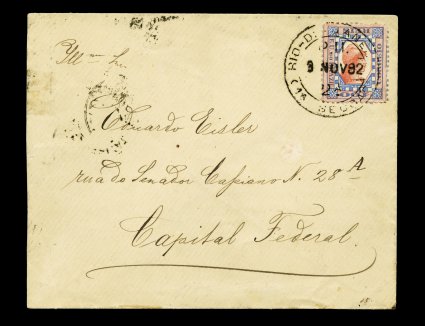 Illmo Sr.
Eduardo Eisler
rua do Senador Cassiano N. 28A
Capital Federal.
RIO-DE-JANEIRO
9 NOV 92
1ª SECÇÃO